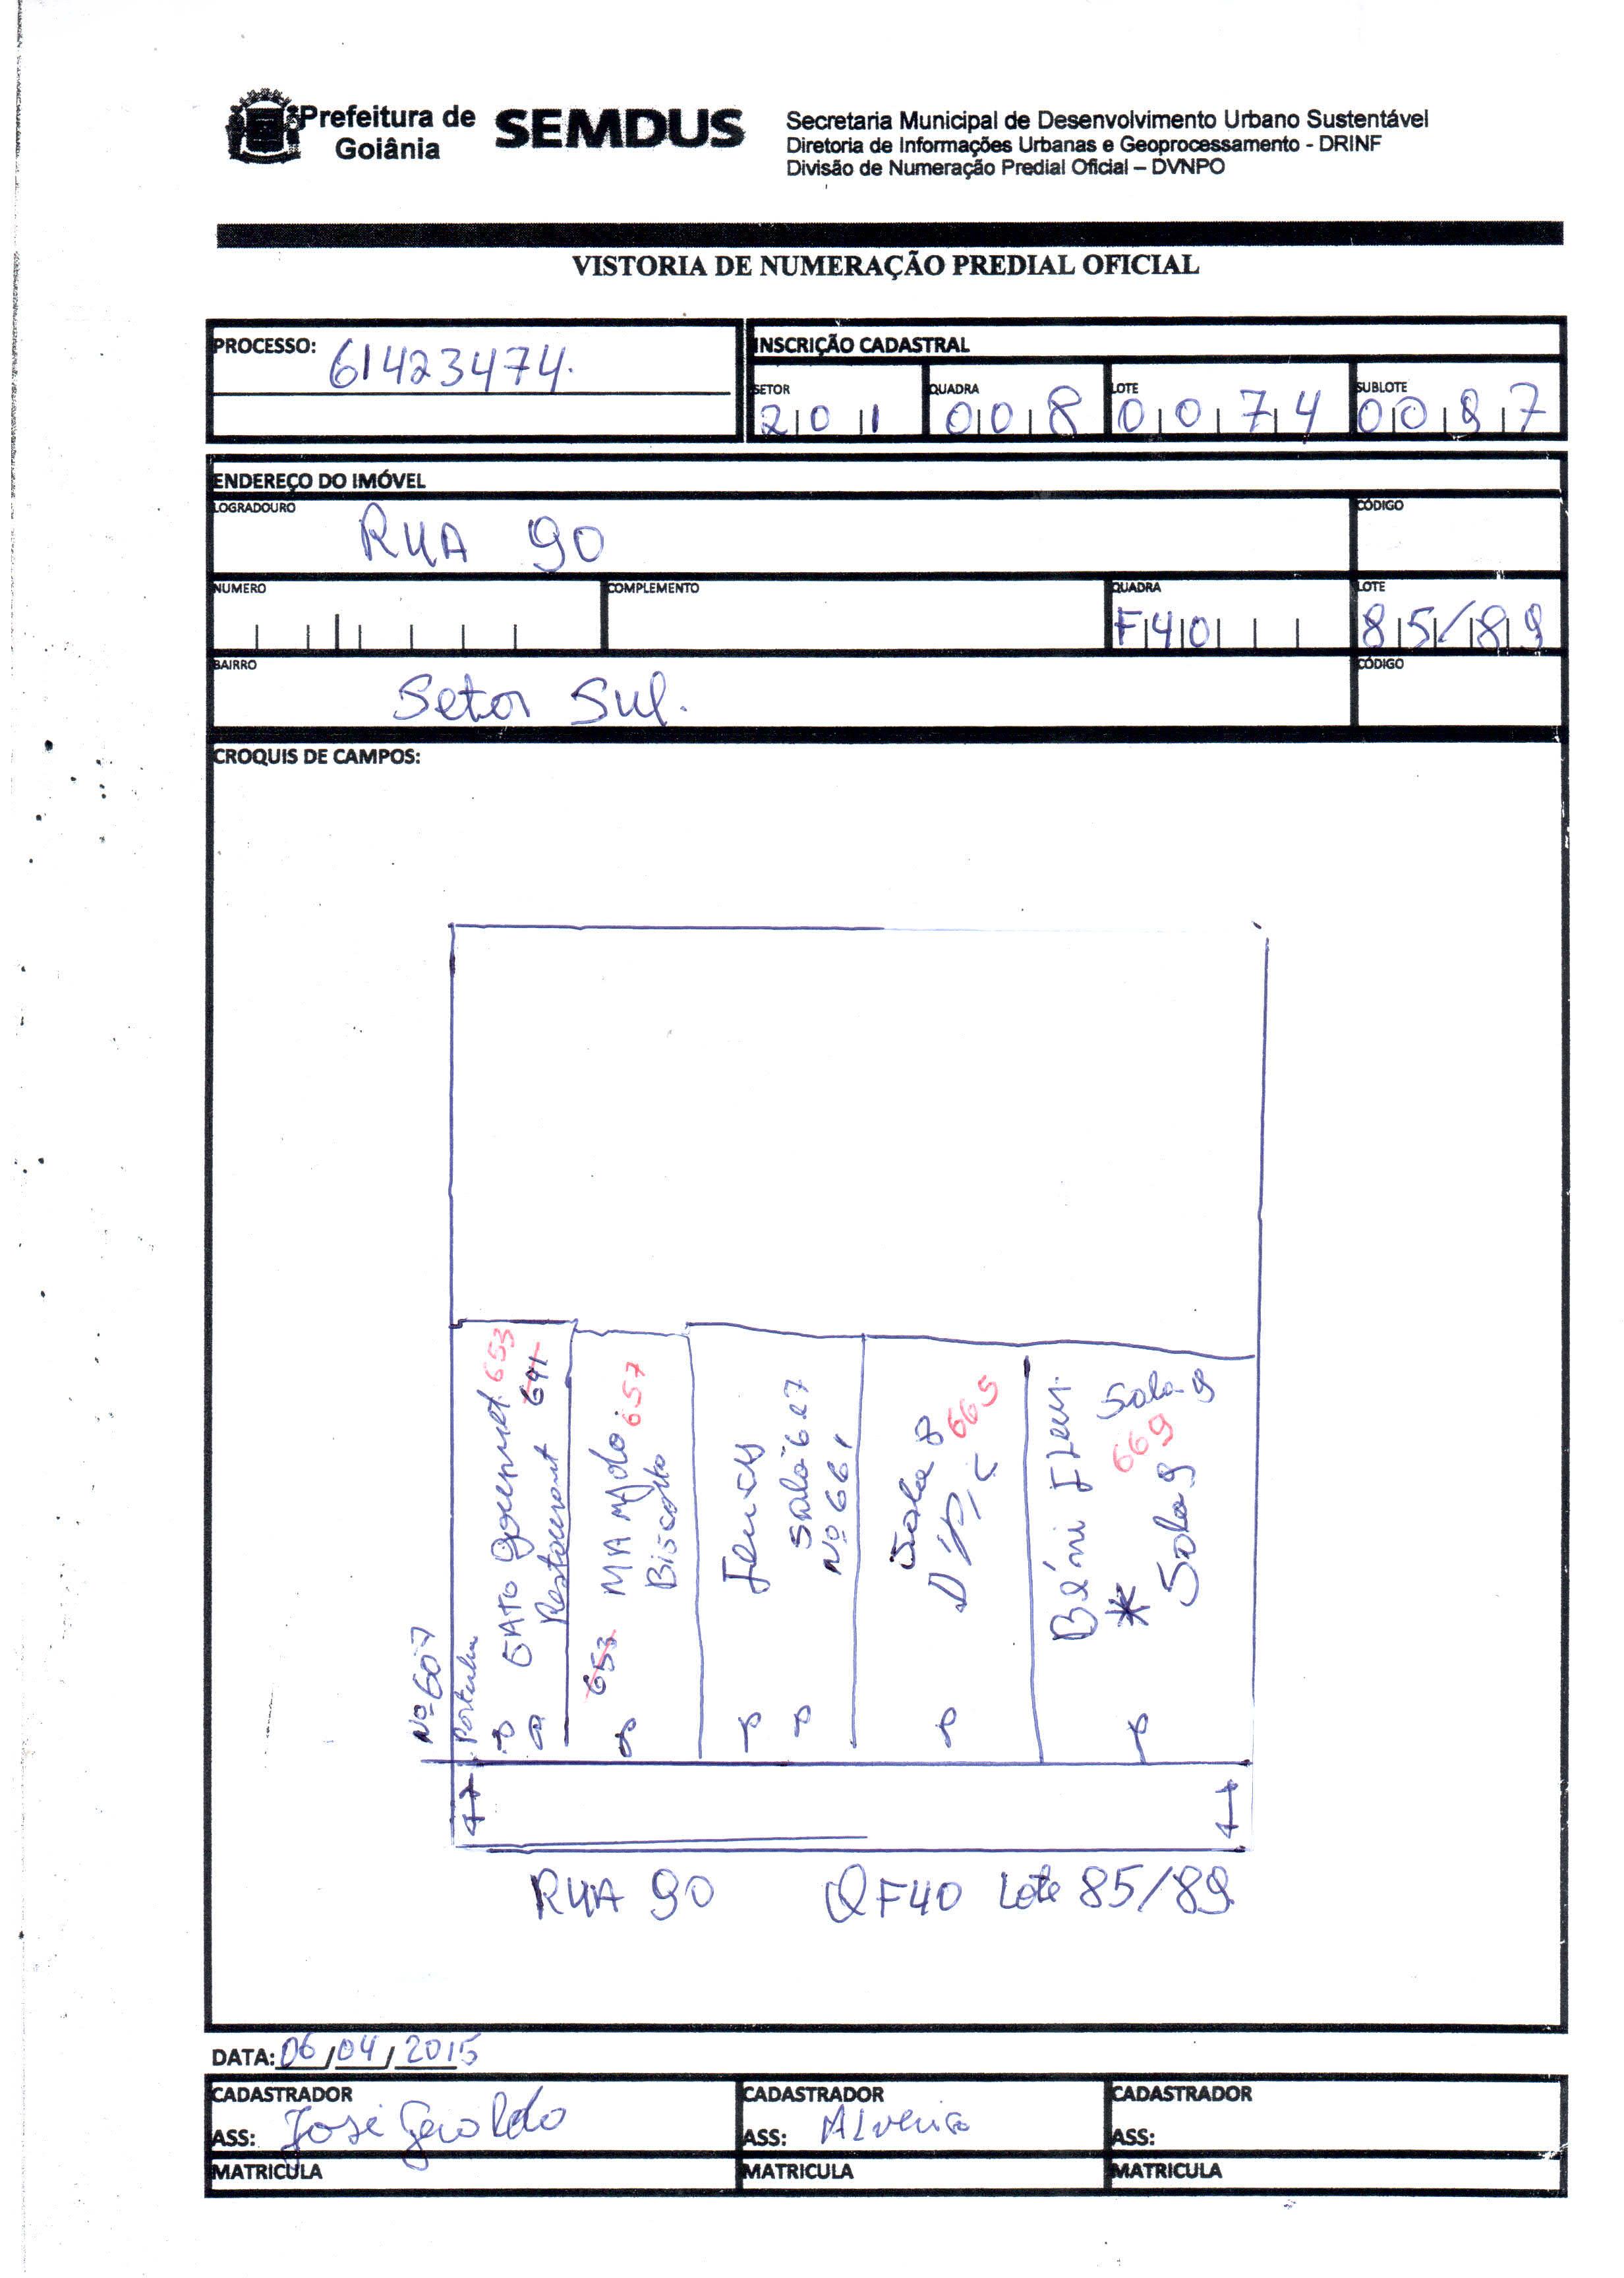 Prefeitura de
Goiânia
SEMDUS
Secretaria Municipal de Desenvolvimento Urbano Sustentável
Diretoria de Informações Urbanas e Geoprocessamento - DRINF
Divisão de Numeração Predial Oficial – DVNPO
VISTORIA DE NUMERAÇÃO PREDIAL OFICIAL
PROCESSO: 61423474.
INSCRIÇÃO CADASTRAL
SETOR QUADRA LOTE SUBLOTE
201 008 0074 0097
ENDEREÇO DO IMÓVEL
LOGRADOURO CÓDIGO
RUA 90
NUMERO COMPLEMENTO QUADRA LOTE
F40 85/89
BAIRRO CÓDIGO
Setor Sul.
CROQUIS DE CAMPOS:
Nº 607
GATO gourmet 653
Restaurant 641
653
MAMÃO 657
Biscoito
Sala 6 e 7
Nº 661
Sala 8
665
Sala 9
669
* Sala 9
RUA 90 QF40 Lote 85/89
DATA: 06/04/2015
CADASTRADOR CADASTRADOR CADASTRADOR
ASS: José Geraldo ASS: ASS:
MATRICULA MATRICULA MATRICULA